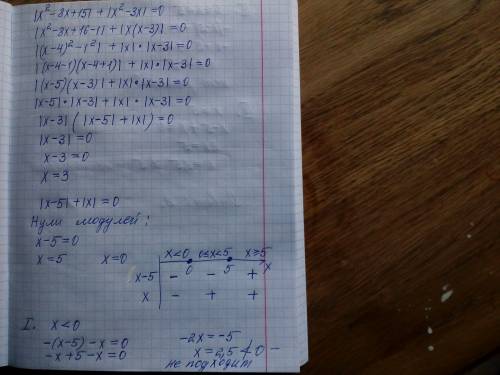 |x²-8x+15|+|x²-3x|=0
|x²-8x+16-1|+|x(x-3)|=0
|(x-4)²-1²|+|x|·|x-3|=0
|(x-4-1)(x-4+1)|+|x|·|x-3|=0
|(x-5)(x-3)|+|x|·|x-3|=0
|x-5|·|x-3|+|x|·|x-3|=0
|x-3|(|x-5|+|x|)=0
|x-3|=0
x-3=0
x=3
|x-5|+|x|=0
Нули модулей:
x-5=0
x=5 x=0
x<0 0≤x<5 x≥5
0 5 x
x-5 - - +
x - + +
I. x<0
-(x-5)-x=0 -2x=-5
-x+5-x=0 x=2,5≮0 -
не подходит